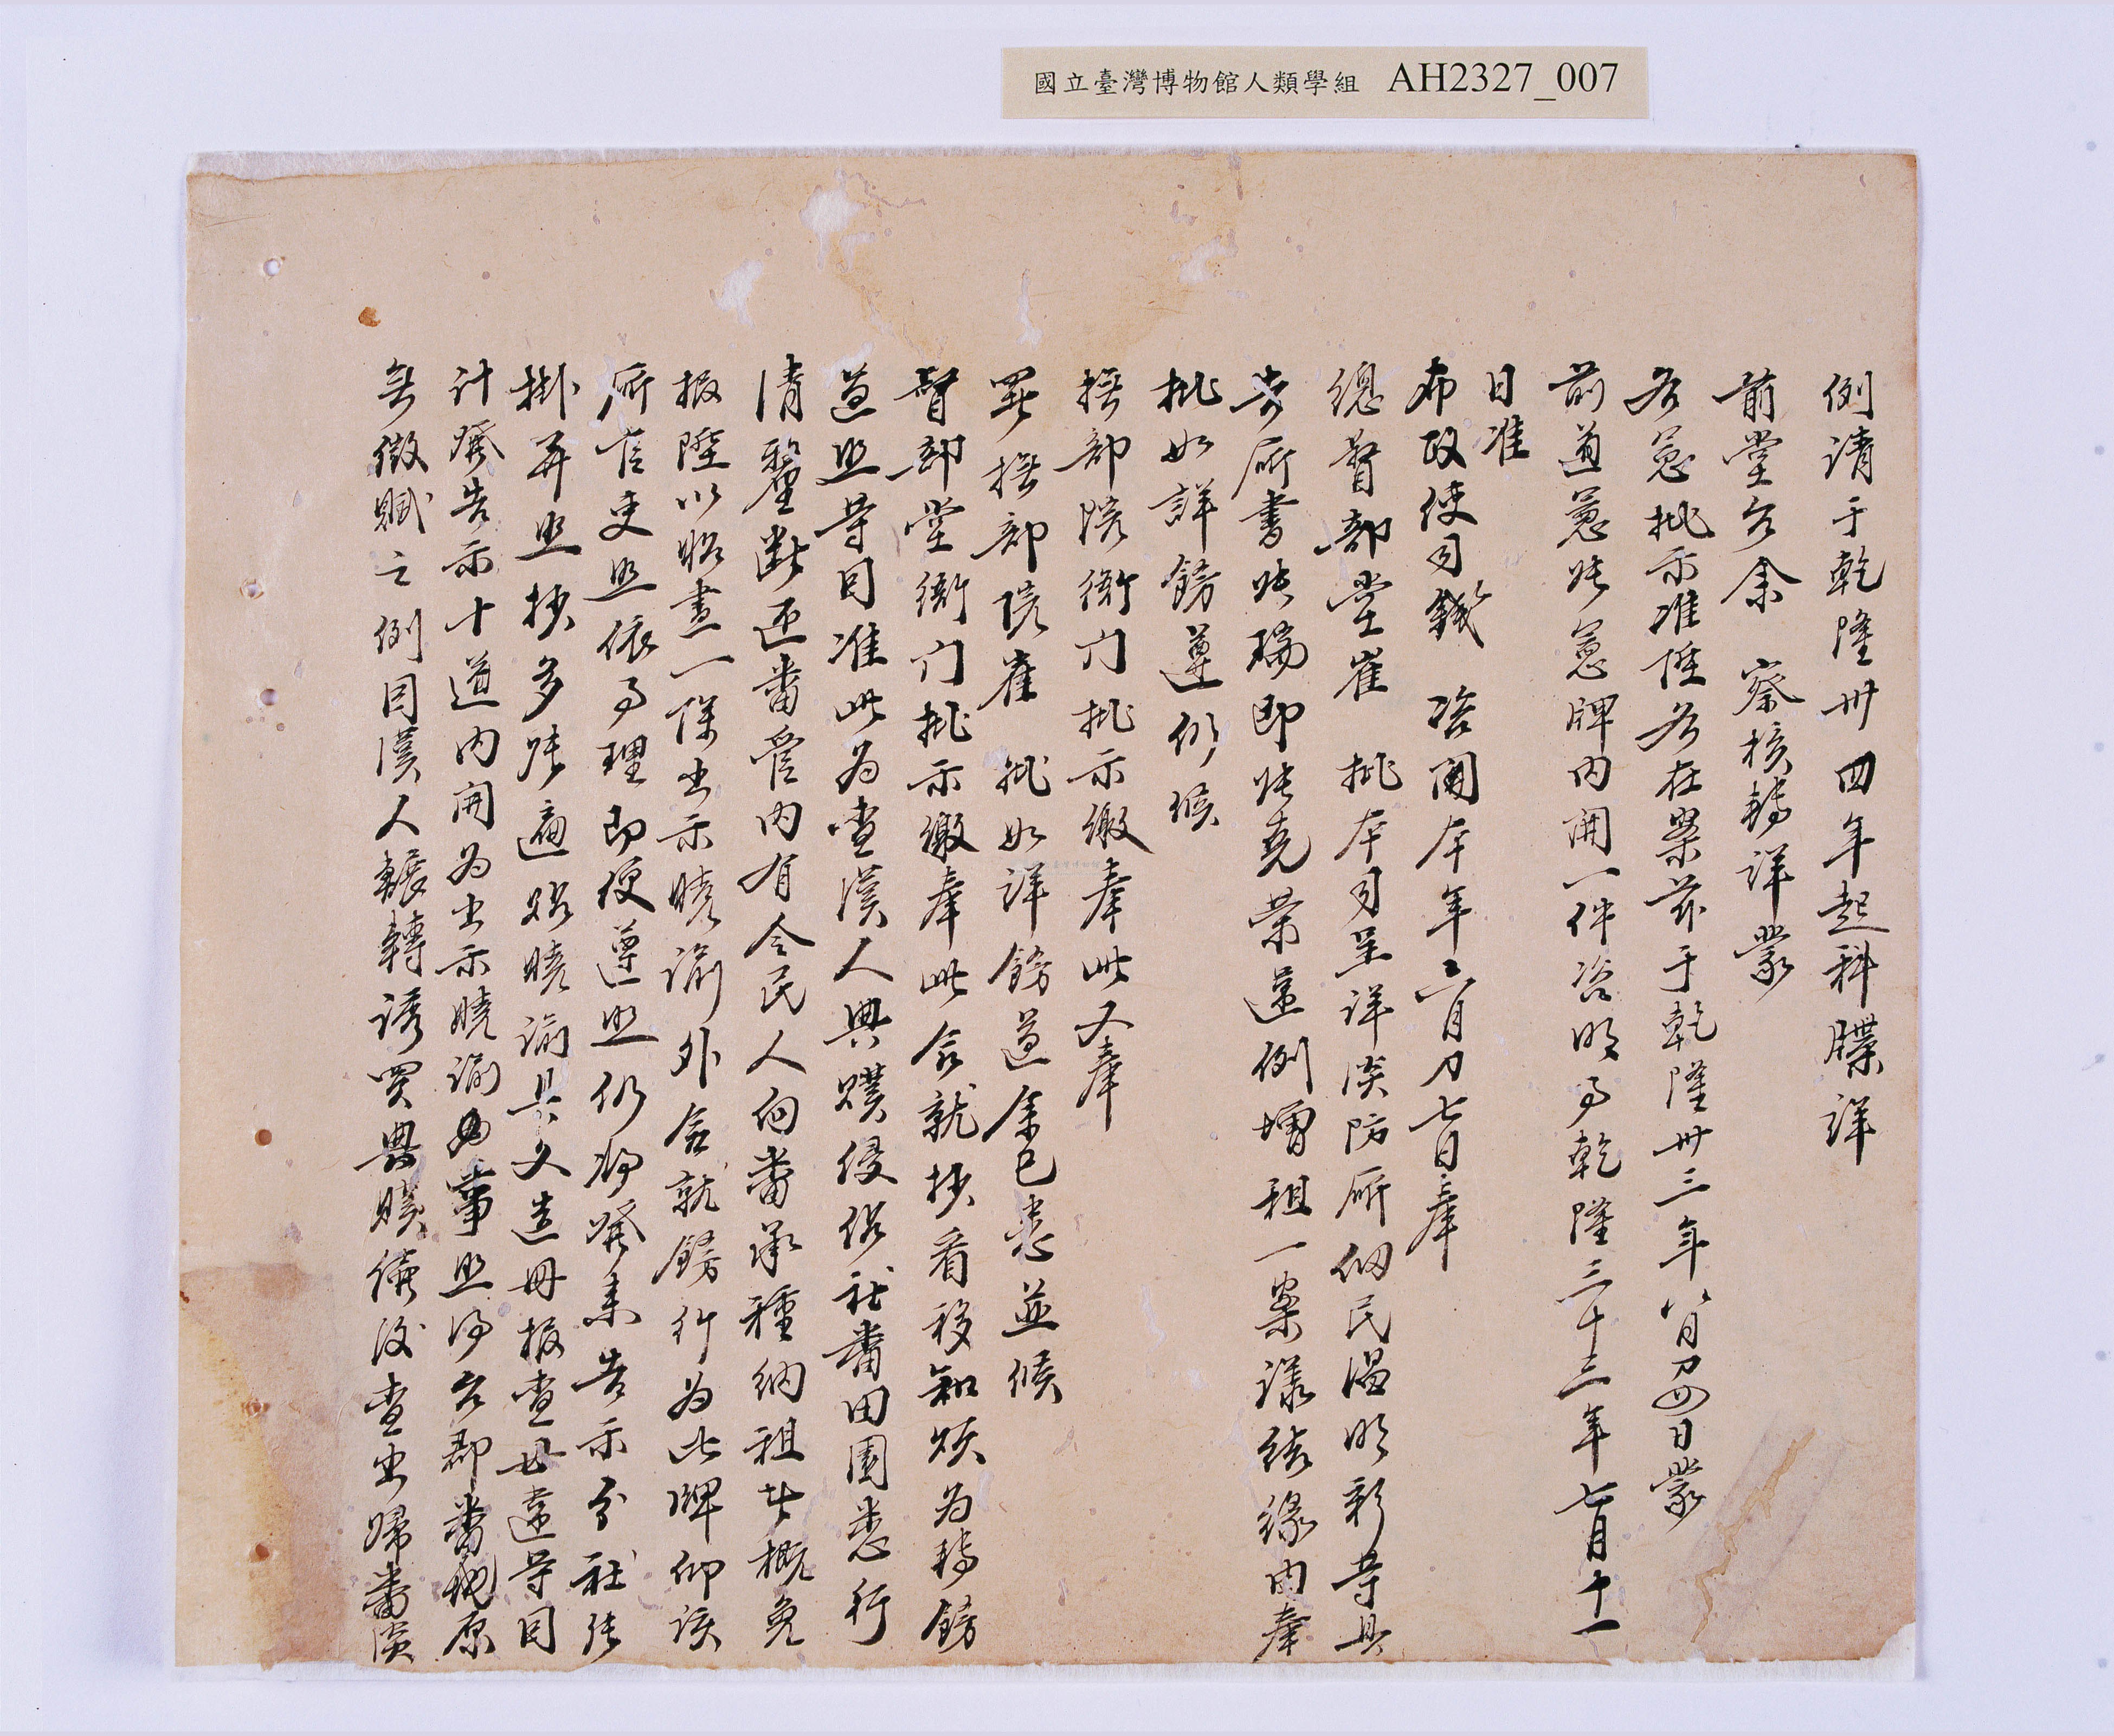 國立臺灣博物館人類學組 AH2327_007
例請于乾隆卅四年起科牒詳
前堂台余 察核轉詳蒙
各憲批示准陞各在案茲于乾隆卅三年八月初四日蒙
前道憲張憲牌內開一件咨明事乾隆三十三年七月十一
日准
布政使司錢 咨開本年六月初七日奉
總督部堂崔 批本司呈詳淡防廳佃民溫明彩等具
告廳書張瑞即張堯榮違例增租一案議結緣由奉
批如詳飭遵仍候
撫部院衙門批示繳奉此又奉
署撫部院崔 批如詳飭遵余已悉並候
督部堂衙門批示繳奉此合就抄看移知煩為轉飭
遵照等因准此為查漢人典贌侵佔社番田園悉行
清釐斷還番管內有令民人向番承種納租者概免
報陞以昭畫一除出示曉諭外合就飭行為此牌仰該
廳官吏照依事理即便遵照仍將發來告示分社張
掛并照抄多張遍貼曉諭具文造冊報查毋違等因
計發告示十道內開為出示曉諭事照得台郡番地原
無徵賦之例因漢人輾轉誘買典贌續後查出歸番